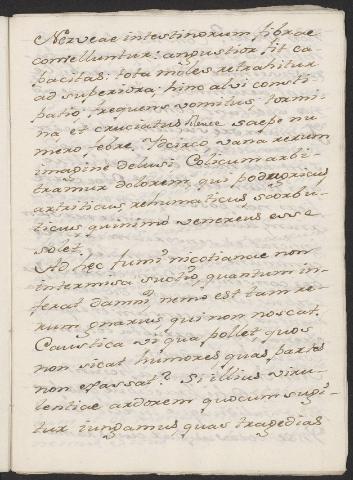 Nerveae intestinorum fibrae
convelluntur: angustior fit ca
pacitas: tota moles retrahitur
ad superiora; hinc alvi consti
patio, frequens vomitus, tormi
na et cruciatus saepe nu
mero febre. Idcirco vana rerum
imagine delusi Colicum arbi-
tramur dolorem, qui podagricus
artriticus rehumaticus, scorbu-
ticus quinimo venereus esse
solet.
Ad hęc fumi nicotianae non
intermissa suctio quantum in-
ferat damni nemo est tam re-
rum gnarus qui non noscat.
Caustica vi qua pollet quos
non sicat humores quas partes
non exassat? Si illius viru-
lentiae ardorem quocum sugi-
tur iungamus quas tragedias